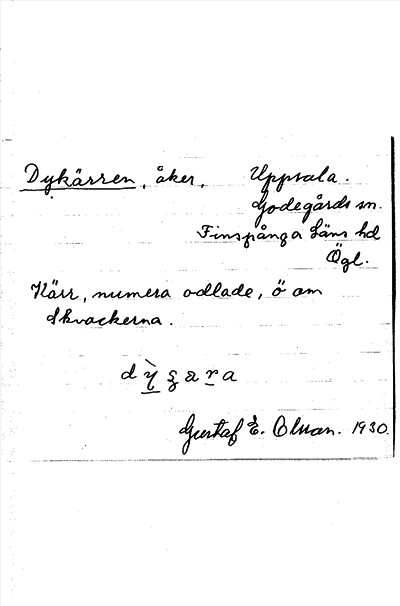 Dykärren, åker, Uppsala.
Godegårds sn.
Finspånga Läns hd
Ögl.
Kärr, numera odlade, ö om
Skvackerna.
Gustaf E. Olsson. 1930.